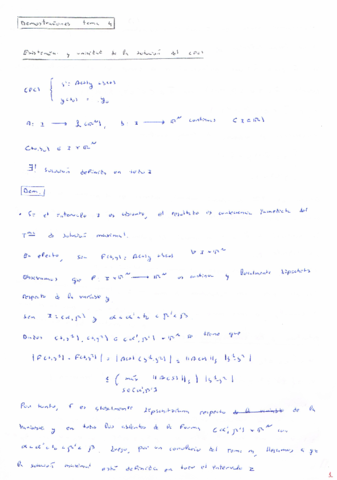 Demostraciones tema 4
Existencia y unicidad de la solución del (PC)
(PC) { y' = A(x)y + b(x)
y(x₀) = y₀
A: I → L(ℝᴺ), b: I → ℝᴺ continuas (I ⊂ ℝ)
(x₀, y₀) ∈ I × ℝᴺ
∃! solución definida en todo I
Dem.
• Si el intervalo I es abierto, el resultado es consecuencia inmediata del
de solución maximal.
En efecto, sea F(x,y) = A(x)y + b(x) ∀ I × ℝᴺ
Observamos que F: I × ℝᴺ → ℝᴺ es continua y localmente lipschitziana
respecto de la variable y
Sea I = (α, β) y α < α' < x₀ < β' < β
Dados (x, y¹), (x, y²) ∈ (α', β') × ℝᴺ se tiene que
|F(x,y¹) - F(x,y²)| = |A(x)(y¹ - y²)| ≤ ||A(x)|| |y¹ - y²|
≤ ( máx ||A(s)|| ) |y¹ - y²|
s ∈ [α', β']
Por tanto, F es globalmente lipschitziana respecto de la
variable y en todo abierto de la forma (α', β') × ℝᴺ con
α < α' < x₀ < β' < β. Luego, por un corolario del tema, llegamos a que
la solución maximal está definida en todo el intervalo I
1